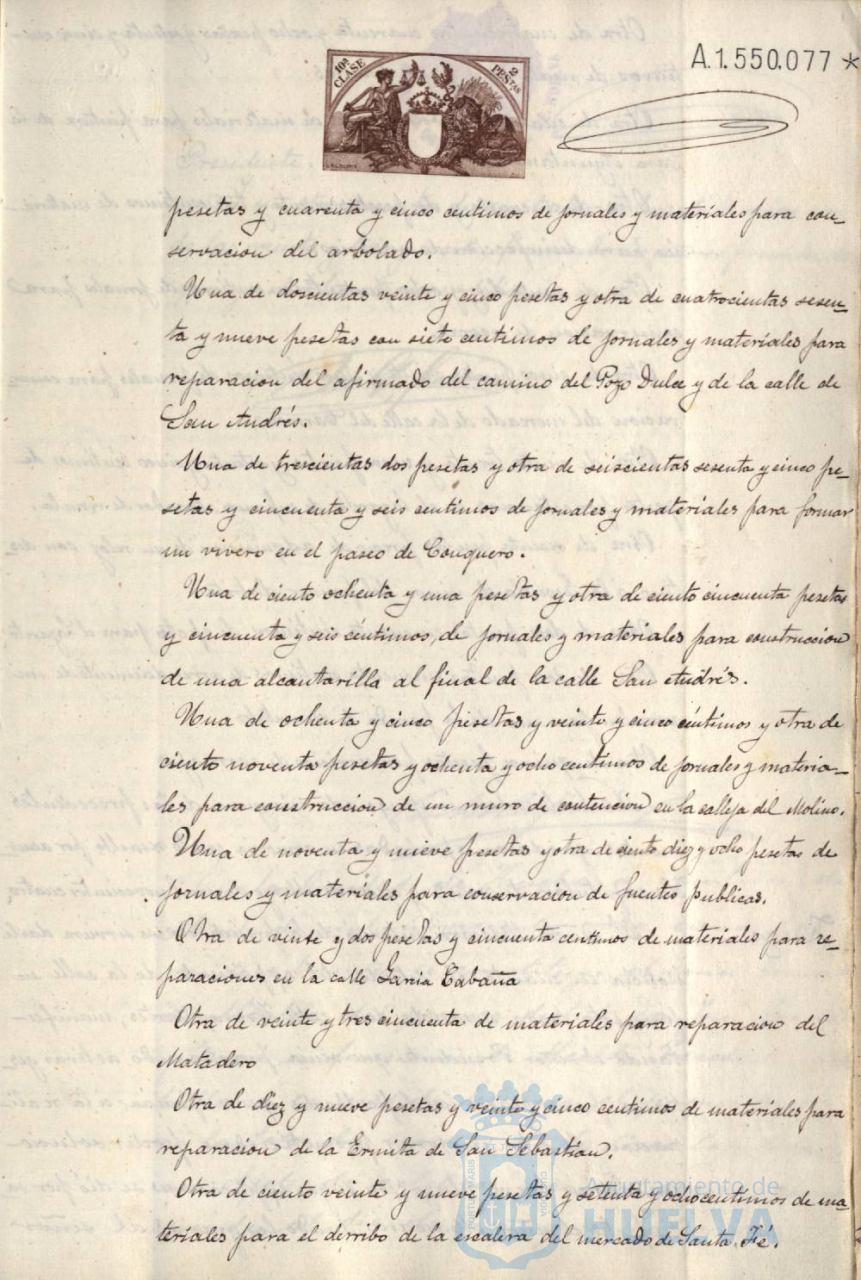 10ª CLASE 2 PESTAS
A.1.550.077 *
pesetas y cuarenta y cinco centimos de jornales y materiales para con-
servacion del arbolado.
Una de doscientas veinte y cinco pesetas y otra de cuatrocientas sesen-
ta y nueve pesetas con siete centimos de jornales y materiales para
reparacion del afirmado del camino del Pozo Dulce y de la calle de
San Andrés.
Una de trescientas dos pesetas y otra de seiscientas sesenta y cinco pe-
setas y cincuenta y seis centimos de jornales y materiales para formar
un vivero en el paseo de Conquero.
Una de ciento ochenta y una pesetas y otra de ciento cincuenta pesetas
y cincuenta y seis céntimos, de jornales y materiales para construccion
de una alcantarilla al final de la calle San Andrés.
Una de ochenta y cinco pesetas y veinte y cinco céntimos y otra de
ciento noventa pesetas y ochenta y ocho centimos de jornales y materia-
les para construccion de un muro de contencion en la calleja del Molino.
Una de noventa y nueve pesetas y otra de ciento diez y ocho pesetas de
jornales y materiales para conservacion de fuentes publicas.
Otra de veinte y dos pesetas y cincuenta centimos de materiales para re-
paraciones en la calle Garcia Cabaña
Otra de veinte y tres cincuenta de materiales para reparacion del
Matadero
Otra de diez y nueve pesetas y veinte y cinco centimos de materiales para
reparacion de la Ermita de San Sebastian.
Otra de ciento veinte y nueve pesetas y setenta y ocho centimos de ma-
teriales para el derribo de la escalera del mercado de Santa Fé.
Ayuntamiento de
HUELVA